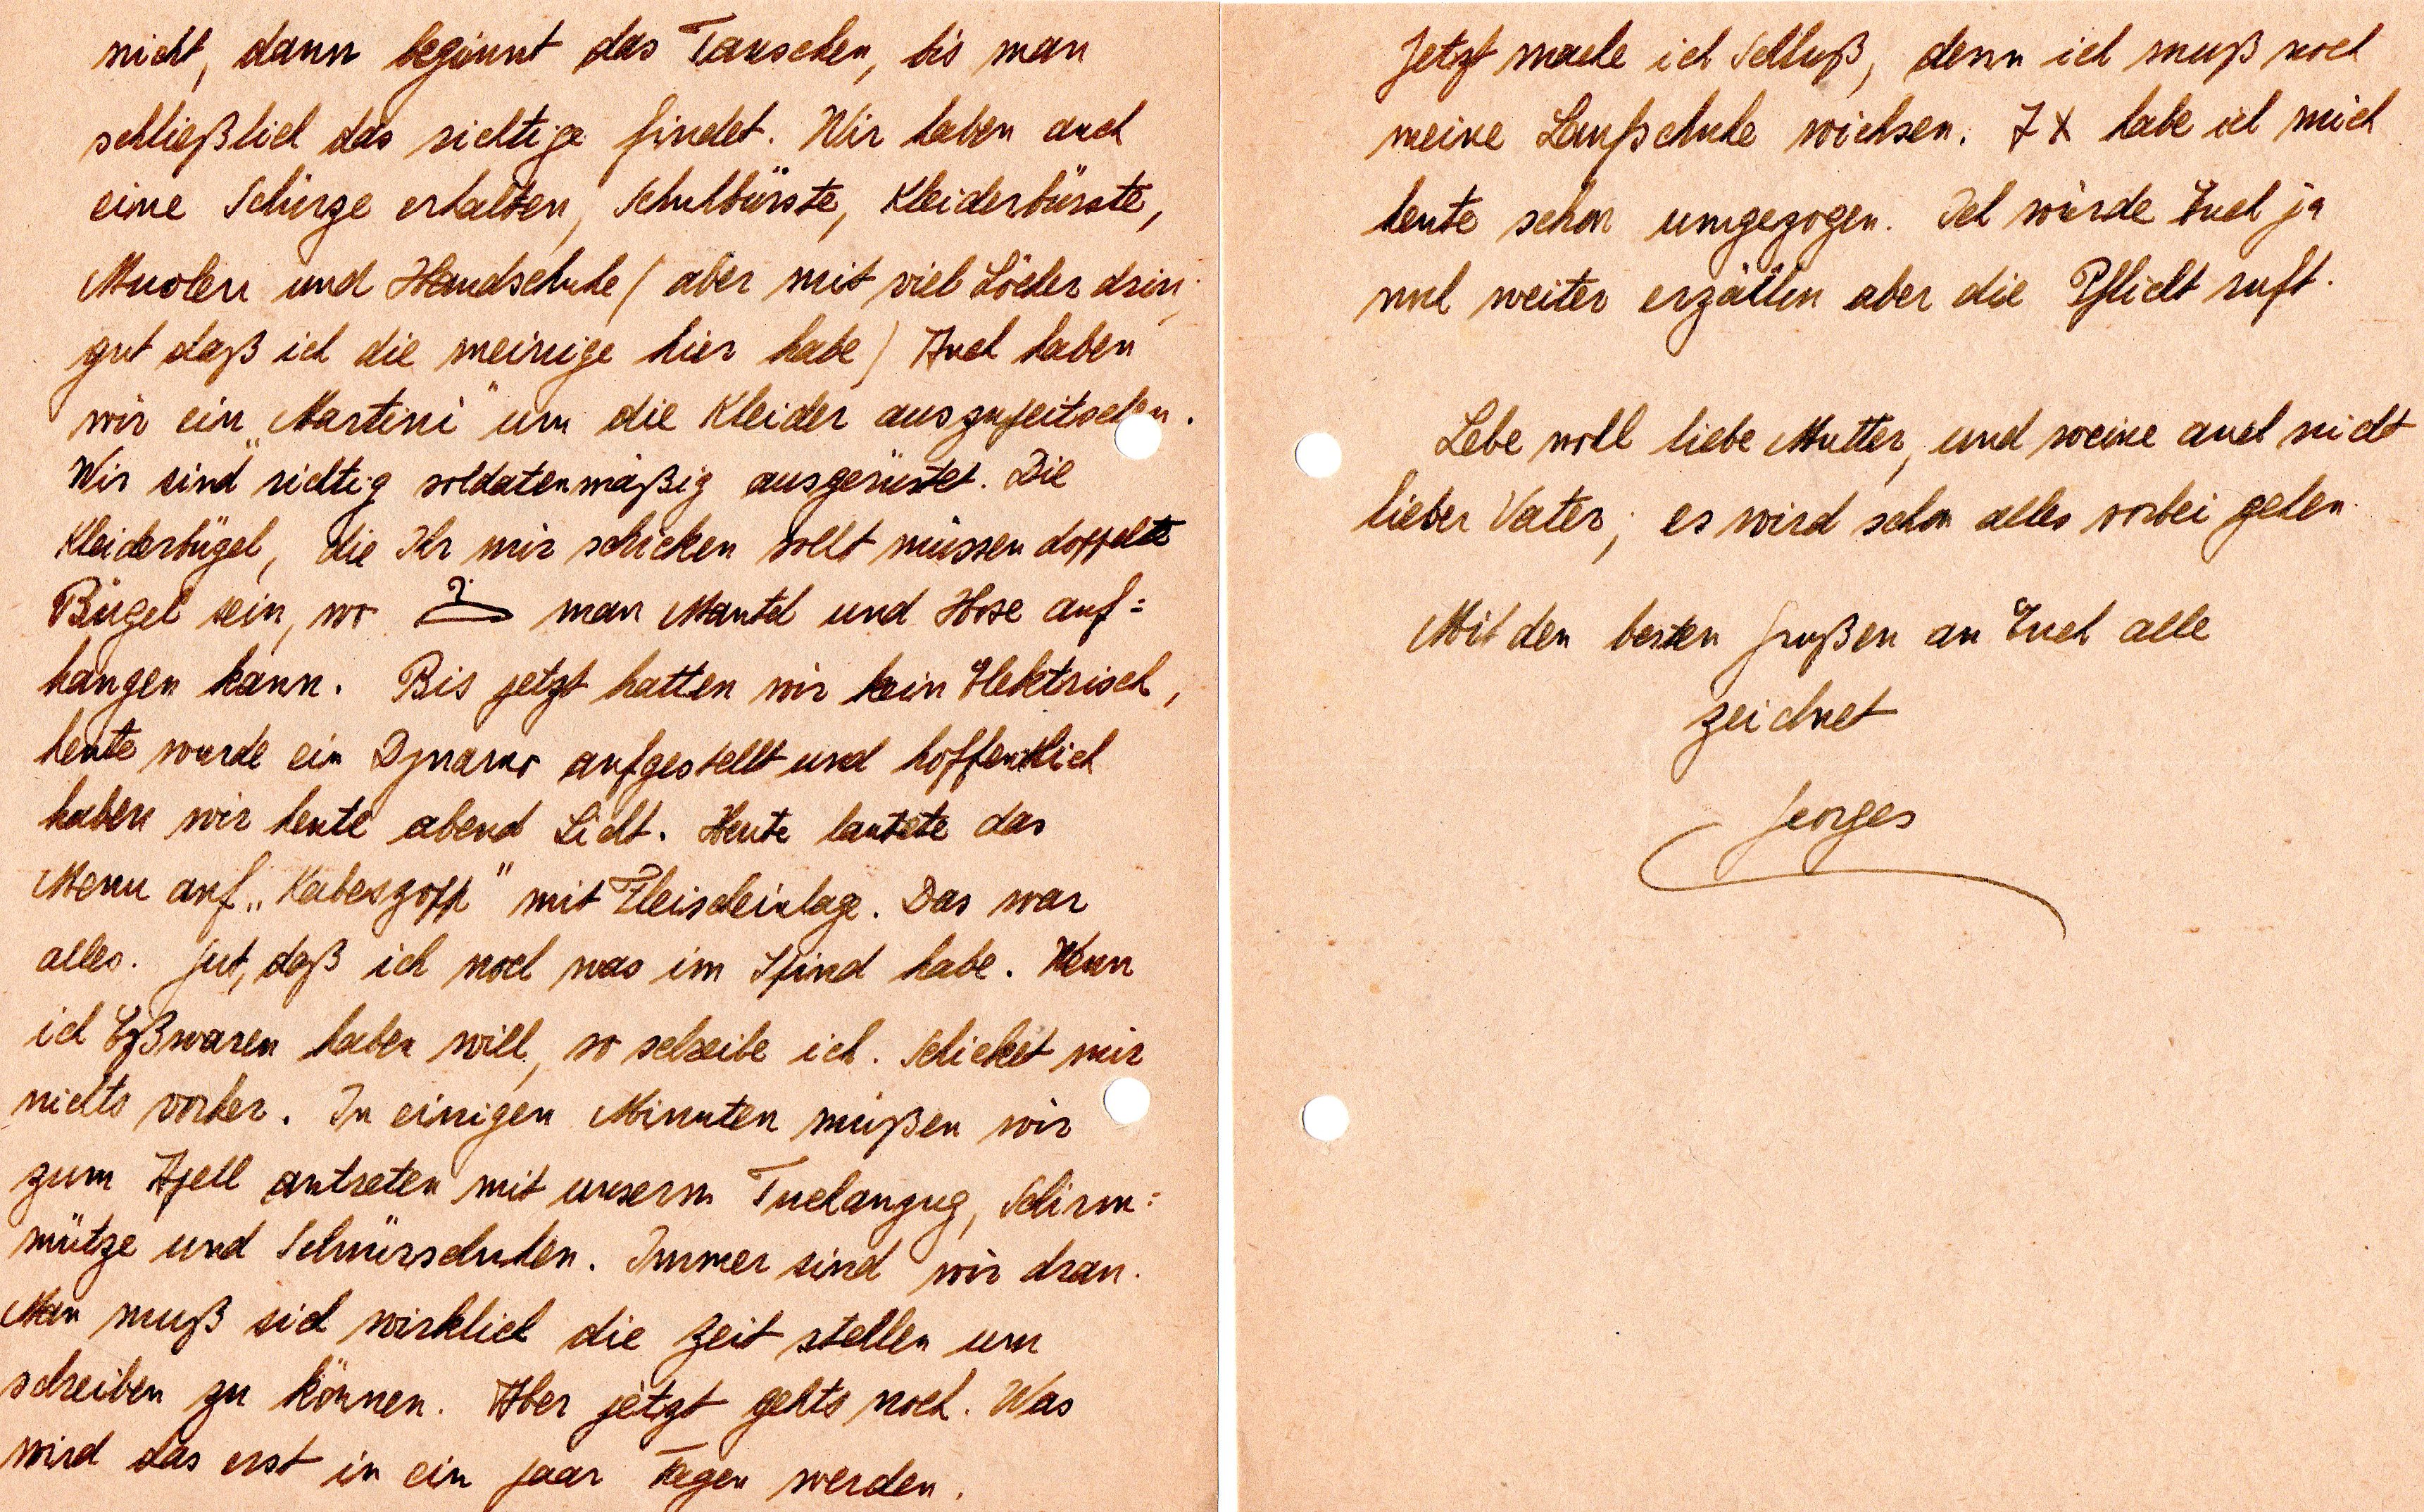 nicht, dann beginnt das Tauschen, bis man
schließlich das richtige findet. Wir haben auch
eine Schürze erhalten, Schuhbürste, Kleiderbürste,
und Handschuhe (aber mit viel Löcher drin,
gut daß ich die meinige hier habe) Auch haben
wir ein „Martini" um die Kleider auszupeitschen.
Wir sind richtig soldatenmäßig ausgerüstet. Die
Kleiderbügel, die Ihr mir schicken sollt müssen doppelte
Bügel sein, wo man Mantel und Hose auf=
hängen kann. Bis jetzt hatten wir kein Elektrisch,
heute wurde ein Dynamo aufgestellt und hoffentlich
haben wir heute abend Licht. Heute lautete das
Menu auf „Kabeszopp" mit Fleischeinlage. Das war
alles. Gut, daß ich noch was im Spind habe. Wenn
ich Eßwaren haben will, so schreibe ich. Schicket mir
nichts vorher. In einigen Minuten müßen wir
zum Apell antreten mit unserm Tuchanzug, Schirm=
mütze und Schnürschuhen. Immer sind wir dran.
Man muß sich wirklich die Zeit stellen um
schreiben zu können. Aber jetzt gehts noch. Was
wird das erst in ein paar Tagen werden.
Jetzt mache ich Schluß, denn ich muß noch
meine Laufschuhe wichsen. 7 x habe ich mich
heute schon umgezogen. Ich würde Euch ja
noch weiter erzählen aber die Pflicht ruft.
Lebe wohl liebe Mutter, und weine auch nicht
lieber Vater, es wird schon alles vorbei gehen.
Mit den besten Grüßen an Euch alle
zeichnet
Georges